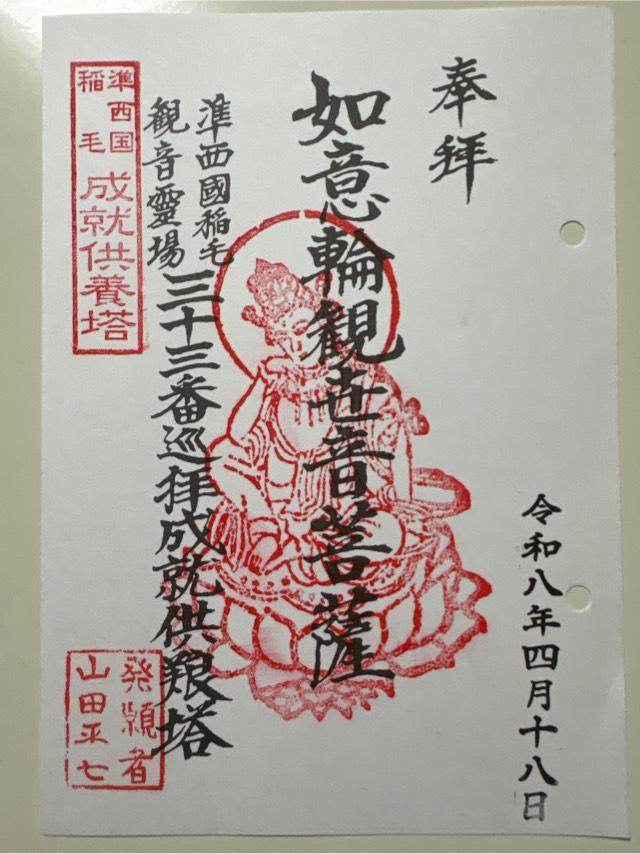 奉拝
令和八年四月十八日
如意輪観世音菩薩
準西國稲毛
観音靈場
三十三番巡拝成就供養塔
準西国
稲毛
成就供養塔
発願者
山田平七